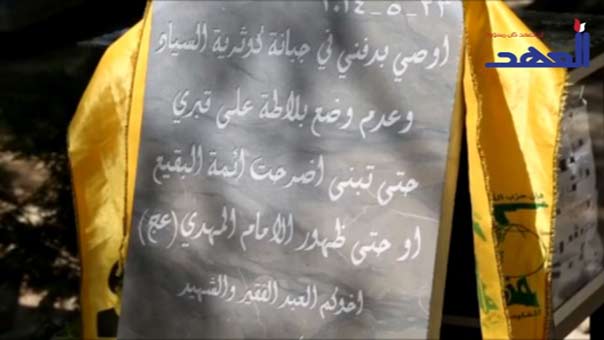 ٢٠١٤_٥_٢٣
اوصي بدفني في جبانة كوثرية السياد
وعدم وضع بلاطة على قبري
حتى تبنى اضرحت ائمة البقيع
او حتى ظهور الامام المهدي (عج)
اخوكم العبد الفقير والشهيد
العهد
فإن حزب